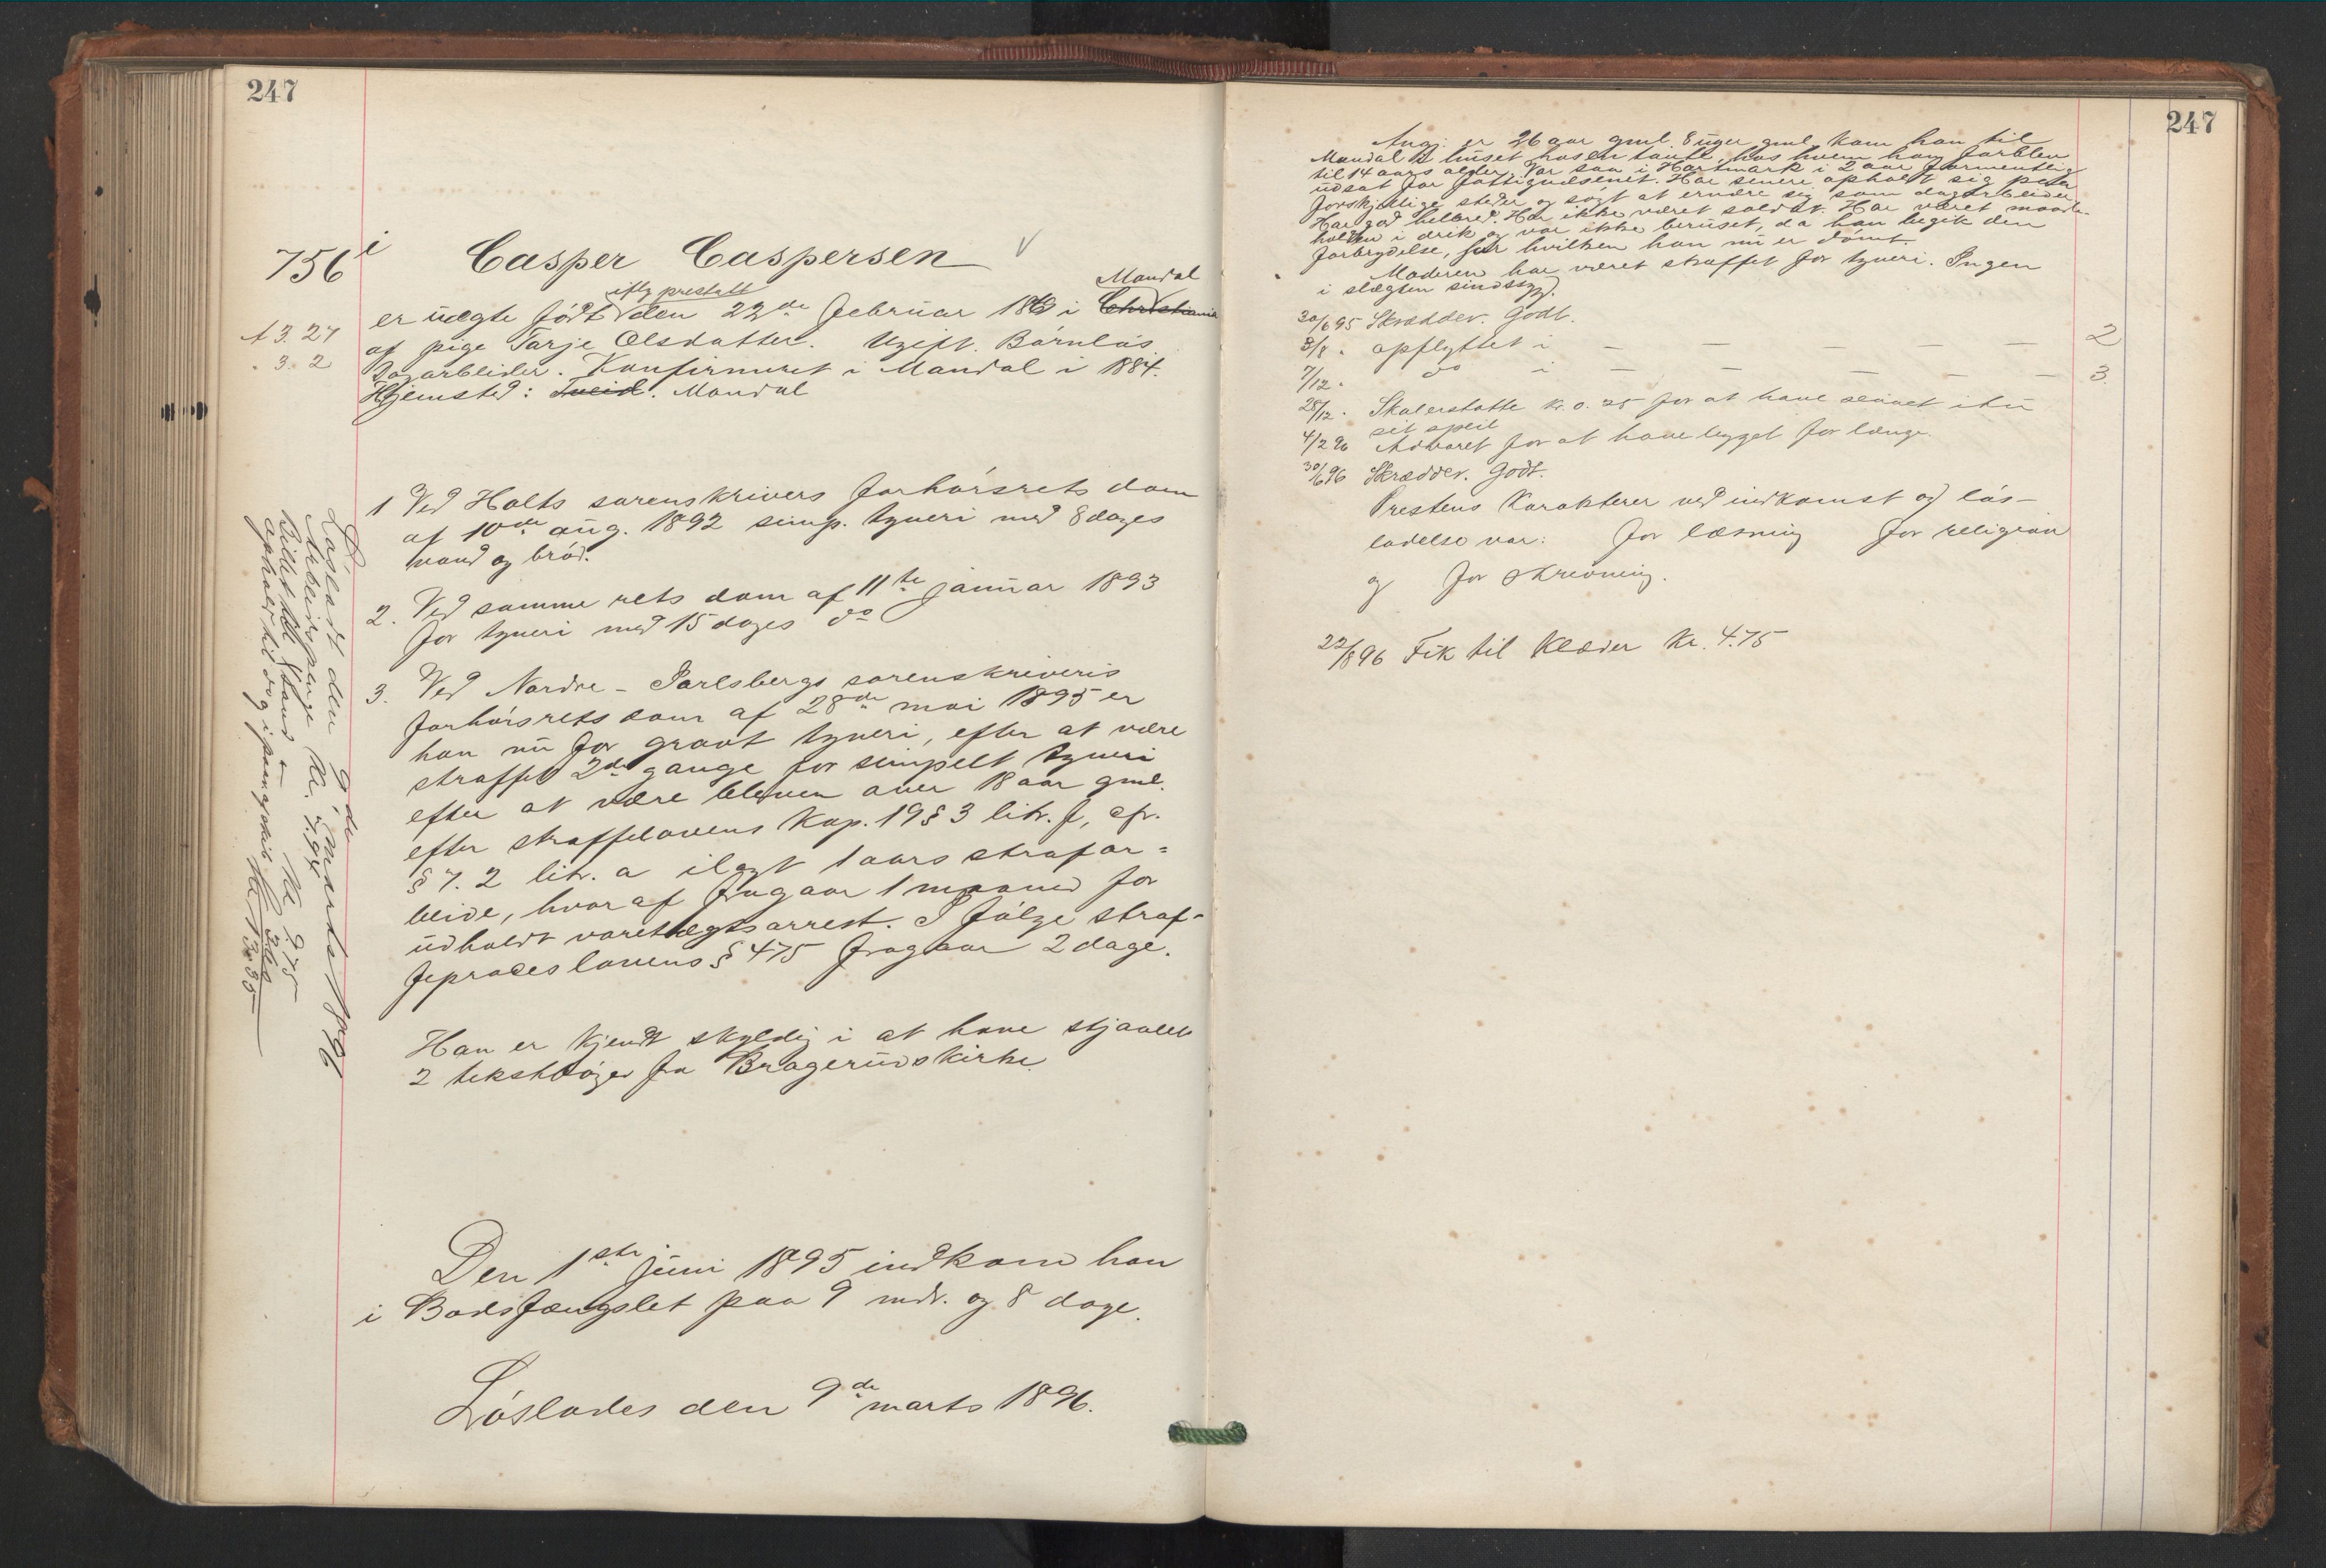 247
756 i
Casper Caspersen
iflg prestatt Mandal
er uægte født den 22de februar 1869 i Christiania
af pige Tarje Olsdatter. Ugift. Barnløs
Dagarbeider. Konfirmeret i Mandal i 1884.
Hjemsted: Tveid. Mandal
A 3. 27
" 3. 2
1 Ved Holts sorenskrivers forhørsrets dom
af 10de aug. 1892 simp. tyveri med 8 dages
vand og brød.
2. Ved samme rets dom af 11te januar 1893
for tyveri med 15 dages do
3. Ved Nordre-Jarlsbergs sorenskriveris
forhørsrets dom af 28de mai 1895 er
han nu for grovt tyveri, efter at være
straffet 2de gange for simpelt tyveri
efter at være bleven over 18 aar gml.
efter straffelovens Kap. 19 § 3 litr. f, cfr.
§ 7. 2 litr. a ilagt 1 aars strafar=
beide, hvoraf fragaar 1 maaned for
udholdt varetægtsarrest. I følge straf-
feproceslovens § 475 fragaar 2 dage.
Han er kjendt skyldig i at have stjaalet
2 tekstbøger fra Bragerud kirke
Den 1ste juni 1895 indkom han
i Bodsfængslet paa 9 mdr. og 8 dage.
Løslodes den 9de marts 1896.
Løsladt den 9de marts 1896
Arbeidspenge Kr. 7.95
Billet til Kr. 9.75
ophold
247
Angj. er 26 aar gml. 8 uger gml. kom han til
Mandal til huset hos en tante, hos hvem han forblev
til 14 aars alder. Var saa i Hartmark i 2 aar formentlig
udsat for fattigvæsenet. Har senere opholdt sig paa
forskjellige steder og søgt at ernære sig som dagarbeider
Har god helbred. Har ikke været soldat. Har været maade-
holden i drik og var ikke beruset, da han begik den
forbrydelse, for hvilken han nu er dømt.
Moderen har været straffet for tyveri. Ingen
i slægten sindssyg.
30/6 95 Skrædder. Godt.
3/8 " opflyttet i — — — — — 2
7/12 " do i — — — — — 3.
28/12 " Skaderstatte kr. 0.25 for at have revet itu
sit speil
4/2 96 Advaret for at have ligget for længe.
30/6 96 Skrædder. Godt.
Prestens Karakterer ved indkomst og løs-
ladelse var: for læsning for religion
og for skrivning.
22/8 96 Fik til Klæder Kr. 4.75